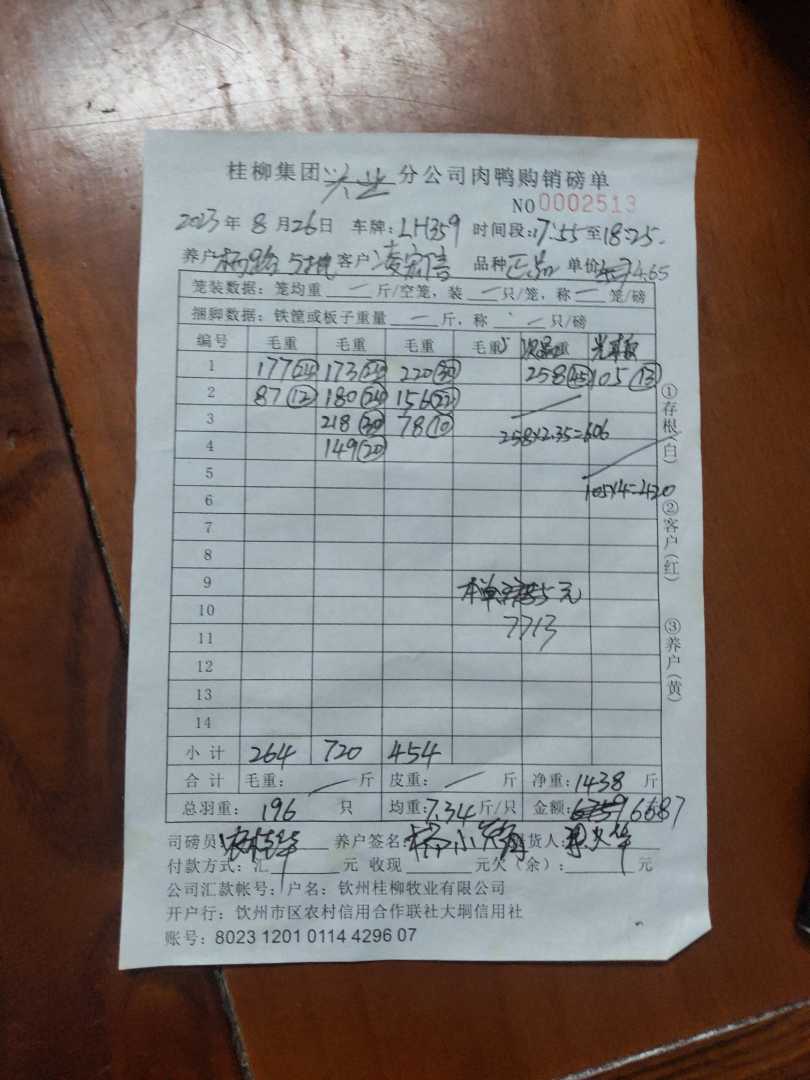 桂柳集团兴业分公司肉鸭购销磅单
NO 0002513
2023年8月26日 车牌:LH359 时间段:17:55至18:25
养户 客户 品种正品 单价4.65
笼装数据：笼均重一斤/空笼，装一只/笼，称一笼/磅
捆脚数据：铁筐或板子重量一斤，称一只/磅
编号 毛重 毛重 毛重 毛重 次品重
1 177(24) 173(24) 220(30) 258(45) 105(13)
2 87(12) 180(24) 156(22)
3 218(30) 78(10) 258×2.35=606
4 149(20)
5 105×4=420
6
7
8
9 元
10 7713
11
12
13
14
①存根(白) ②客户(红) ③养户(黄)
小计 264 720 454
合计 毛重：斤 皮重：斤 净重：1438斤
总羽重：196只 均重：7.34斤/只 金额：6687
司磅员: 养户签名: 货人:
付款方式：汇 元 收现 元欠（余）： 元
公司汇款帐号：户名：钦州桂柳牧业有限公司
开户行：饮州市区农村信用合作联社大垌信用社
账号：8023 1201 0114 4296 07